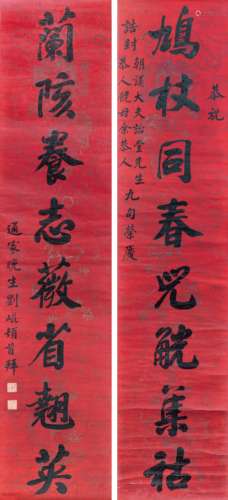 恭祝
誥封朝議大夫 堂先生
恭人 母余恭人 九旬榮慶
鳩杖同春兕觥集祜
蘭陔養志薇省翹英
通家晚生劉 頓首拜